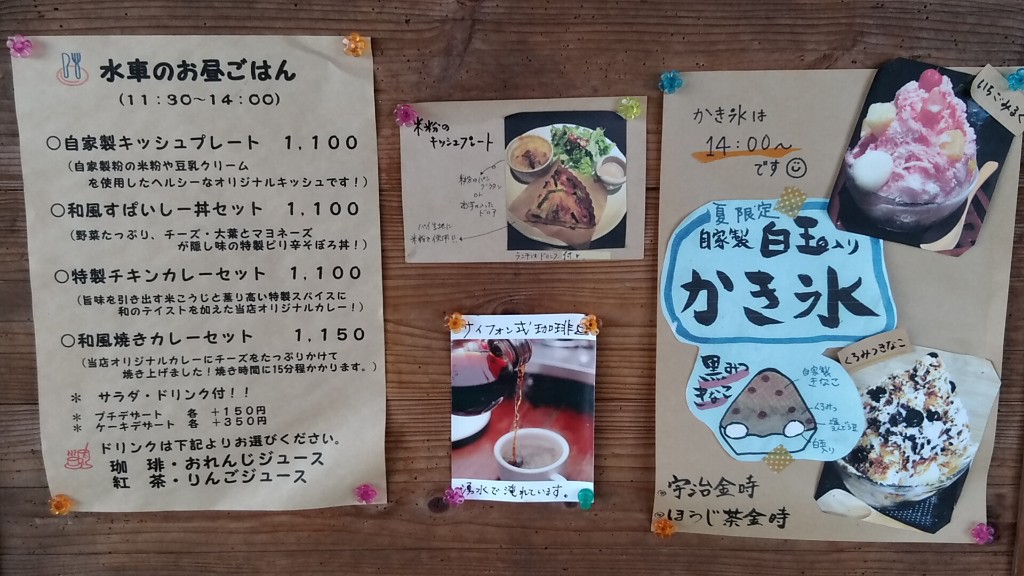 水車のお昼ごはん
(11:30~14:00)
○自家製キッシュプレート 1,100
(自家製粉の米粉や豆乳クリーム
を使用したヘルシーなオリジナルキッシュです!)
○和風すぱいしー丼セット 1,100
(野菜たっぷり、チーズ・大葉とマヨネーズ
が隠し味の特製ピリ辛そぼろ丼!)
○特製チキンカレーセット 1,100
(旨味を引き出す米こうじと薫り高い特製スパイスに
和のテイストを加えた当店オリジナルカレー!)
○和風焼きカレーセット 1,150
(当店オリジナルカレーにチーズをたっぷりかけて
焼き上げました!焼き時間に15分程かかります。)
* サラダ・ドリンク付!!
* プチデザート 各 +150円
* ケーキデザート 各 +350円
ドリンクは下記よりお選びください。
珈 琲・おれんじジュース
紅 茶・りんごジュース
米粉の
キッシュプレート
or
ランチはドリンク付
サイフォン式珈琲
湧水で淹れています。
かき氷は
14:00~
です
いちごみるく
夏限定
自家製 白玉入り
かき氷
黒みつ
きなこ
自家製
きなこ
くろみつ
白玉入り
くろみつきなこ
宇治金時
ほうじ茶金時